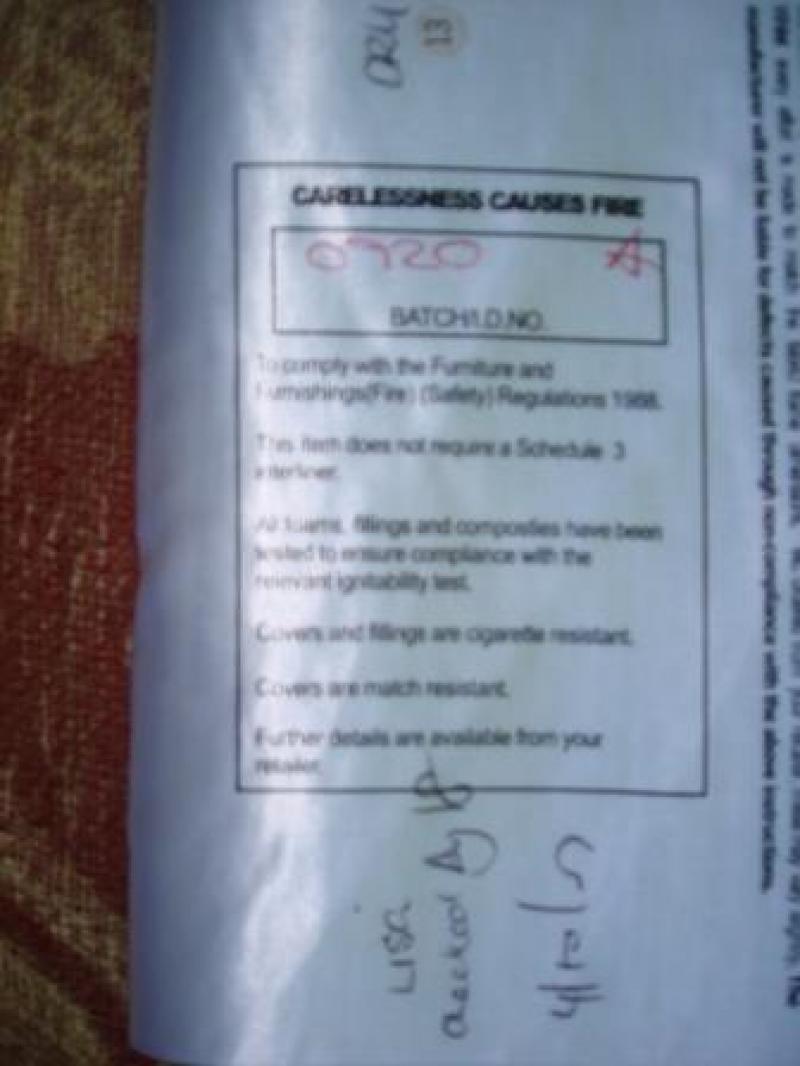 CARELESSNESS CAUSES FIRE
0920 A
BATCH/I.D.NO.
To comply with the Furniture and
Furnishings(Fire) (Safety) Regulations 1988.
This item does not require a Schedule 3
interliner.
All foams, fillings and composties have been
tested to ensure compliance with the
relevant ignitability test.
Covers and fillings are cigarette resistant.
Covers are match resistant.
Further details are available from your
retailer.
13
LISA
checked by
manufacturer will not be liable for defects caused through non-compliance with the above instructions.